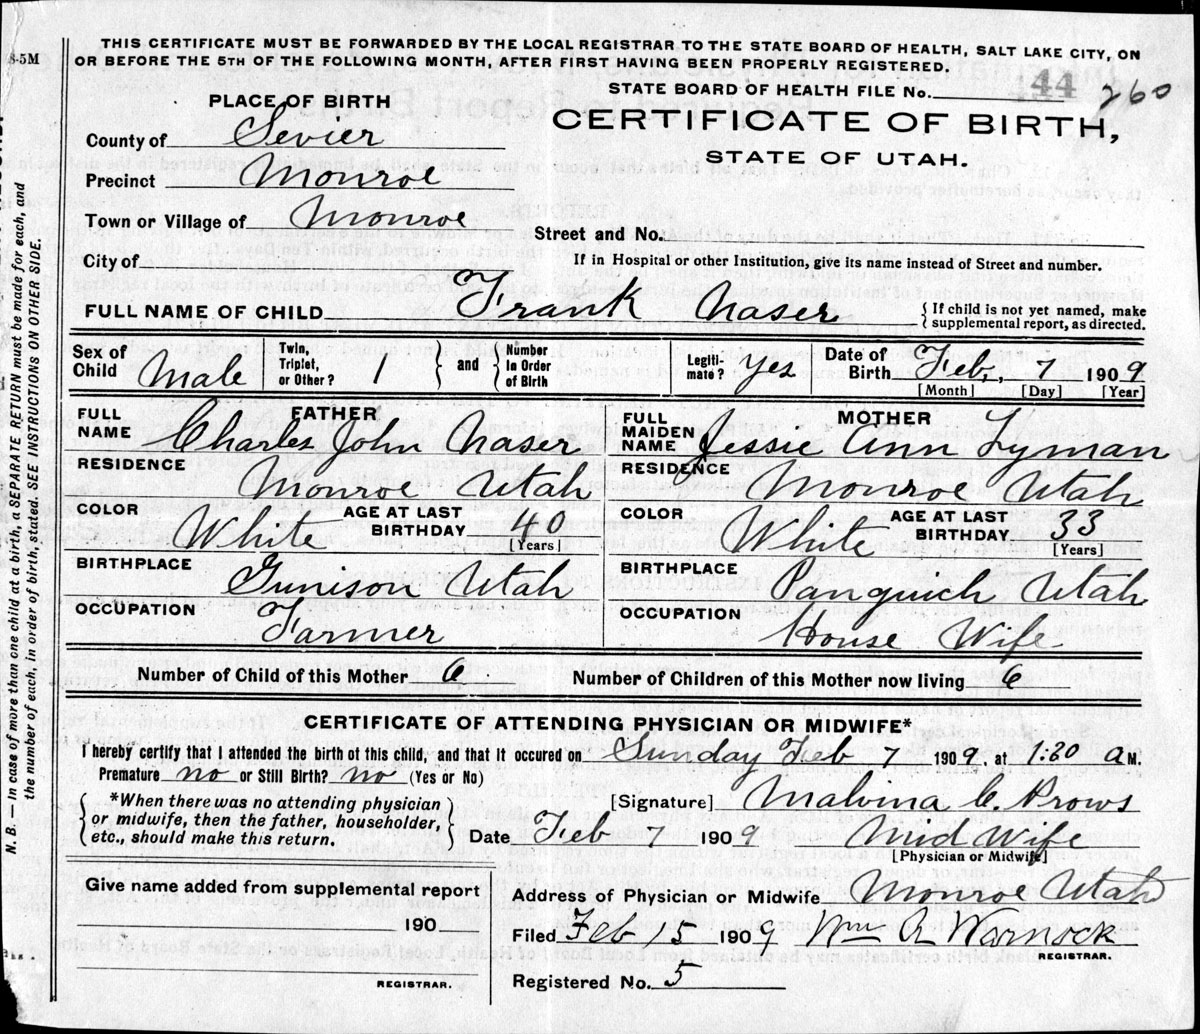 8-5M
THIS CERTIFICATE MUST BE FORWARDED BY THE LOCAL REGISTRAR TO THE STATE BOARD OF HEALTH, SALT LAKE CITY, ON
OR BEFORE THE 5TH OF THE FOLLOWING MONTH, AFTER FIRST HAVING BEEN PROPERLY REGISTERED.
STATE BOARD OF HEALTH FILE No. 44 260
PLACE OF BIRTH
CERTIFICATE OF BIRTH,
STATE OF UTAH.
County of Sevier
Precinct Monroe
Town or Village of Monroe
Street and No.
City of
If in Hospital or other Institution, give its name instead of Street and number.
FULL NAME OF CHILD Frank Naser
{ If child is not yet named, make
supplemental report, as directed.
Sex of Child Male
Twin, Triplet, or Other? 1 } and { Number In Order of Birth
Legiti-mate? Yes
Date of Birth Feb., 7 1909
[Month] [Day] [Year]
FATHER
FULL NAME Charles John Naser
RESIDENCE
Monroe Utah
COLOR White AGE AT LAST BIRTHDAY 40
[Years]
BIRTHPLACE
Gunison Utah
OCCUPATION
Farmer
MOTHER
FULL MAIDEN NAME Jessie Ann Lyman
RESIDENCE
Monroe Utah
COLOR White AGE AT LAST BIRTHDAY 33
[Years]
BIRTHPLACE
Panguich Utah
OCCUPATION
House Wife
Number of Child of this Mother 6 Number of Children of this Mother now living 6
CERTIFICATE OF ATTENDING PHYSICIAN OR MIDWIFE*
I hereby certify that I attended the birth of this child, and that it occured on Sunday Feb 7 1909, at 1:30 AM.
Premature no or Still Birth? no (Yes or No)
{ *When there was no attending physician
or midwife, then the father, householder,
etc., should make this return. }
[Signature] Malvina C. Prows
Date Feb 7 1909 Mid Wife
[Physician or Midwife]
Give name added from supplemental report
190
REGISTRAR.
Address of Physician or Midwife Monroe Utah
Filed Feb 15 1909 Wm A Warnock
REGISTRAR.
Registered No. 5
N. B.—In case of more than one child at a birth, a SEPARATE RETURN must be made for each, and
the number of each, in order of birth, stated. SEE INSTRUCTIONS ON OTHER SIDE.